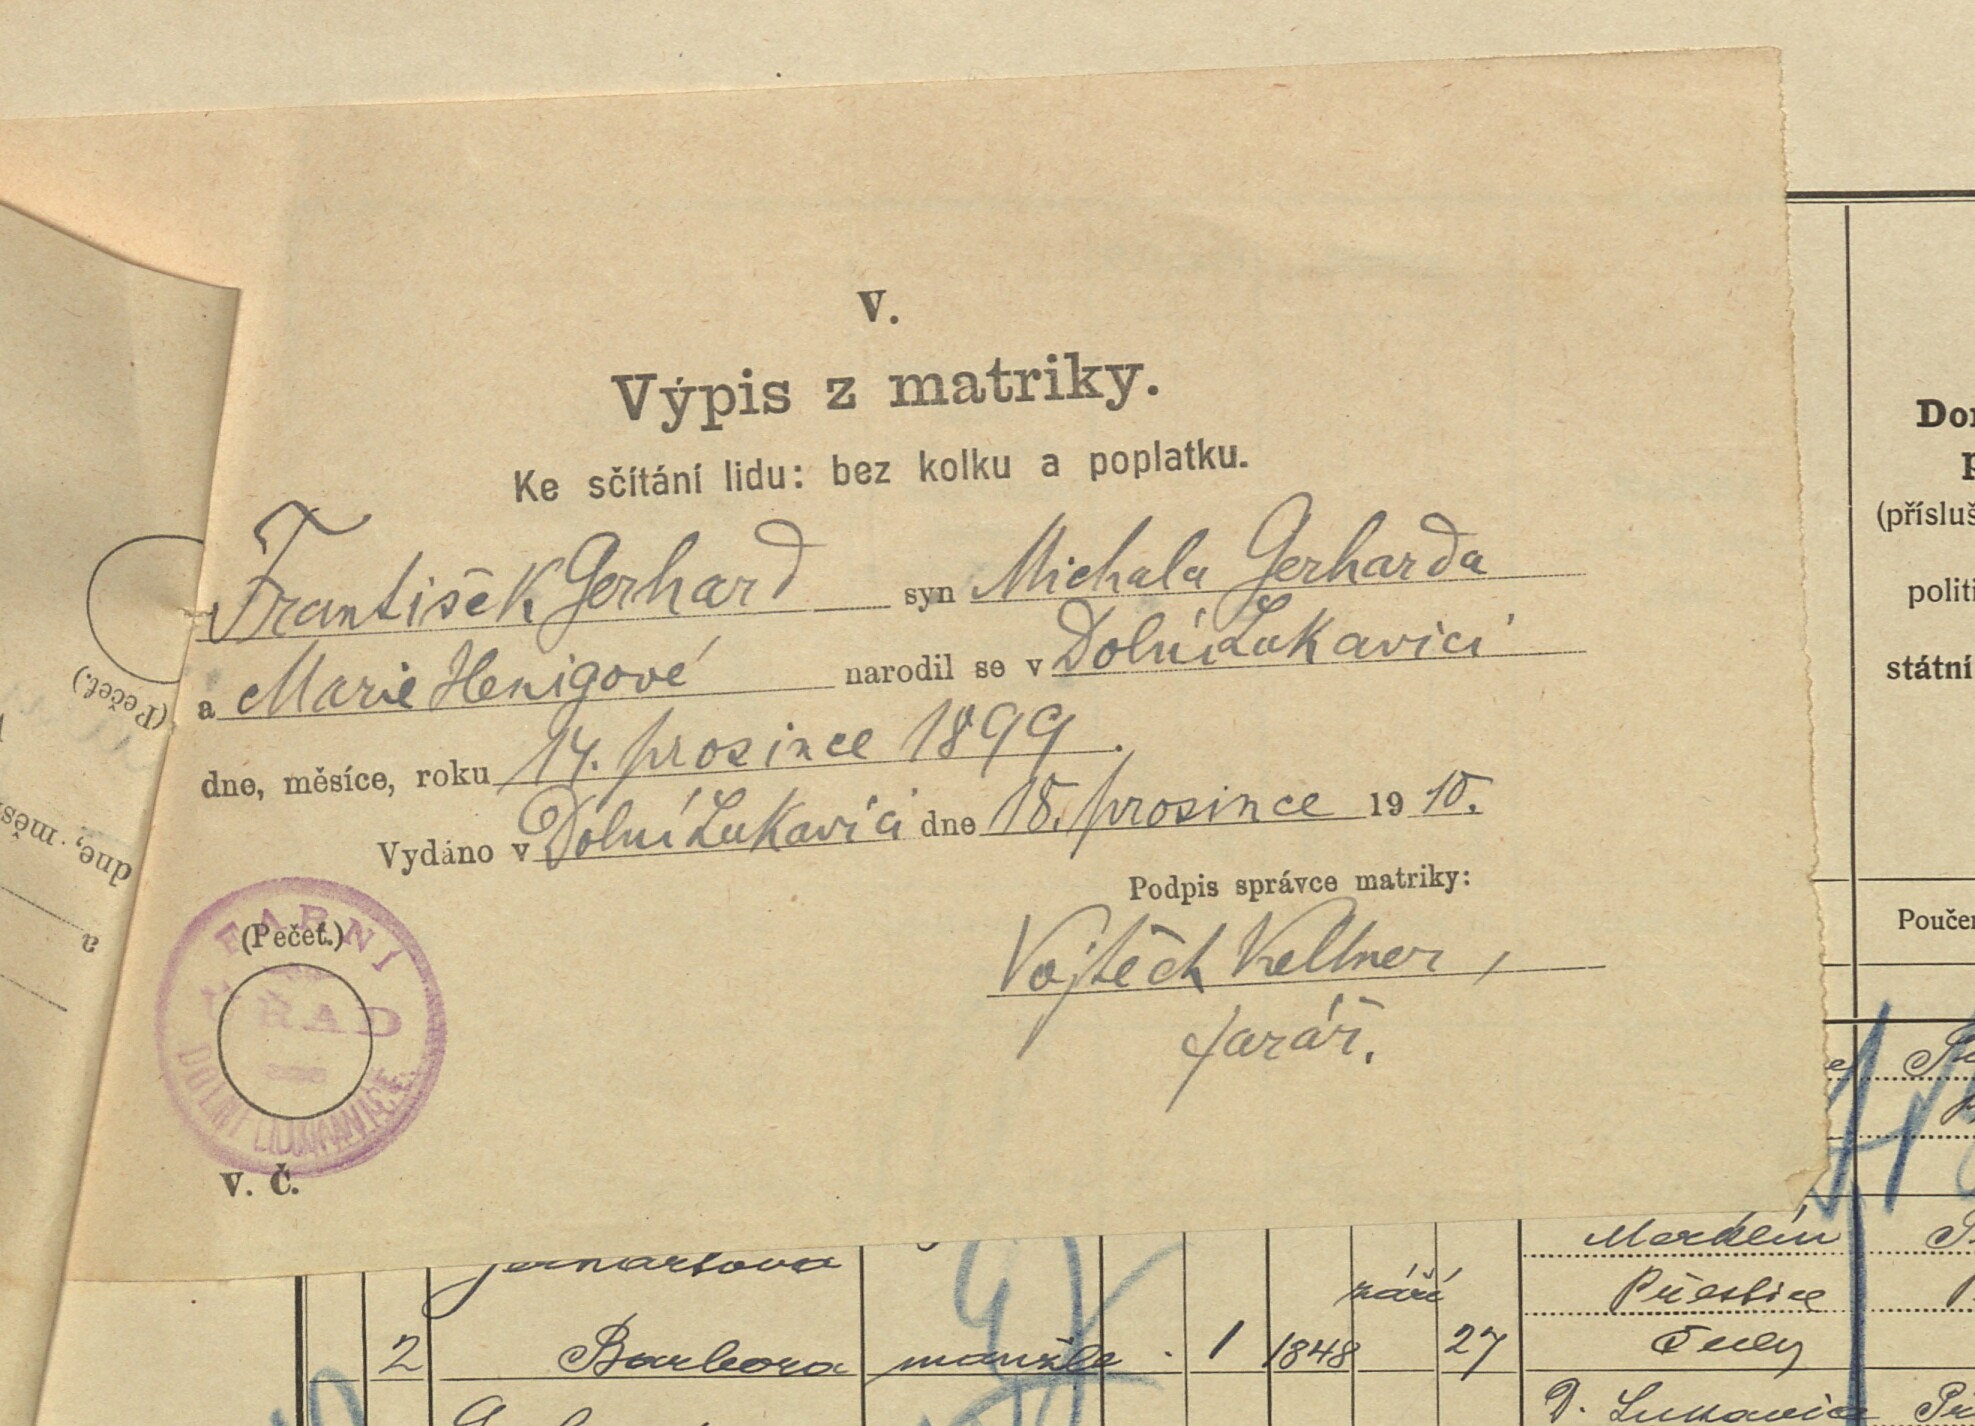 V.
Výpis z matriky.
Ke sčítání lidu: bez kolku a poplatku.
František Gerhard syn Michala Gerharda
a Marie Henigové narodil se v Dolní Lukavici
dne, měsíce, roku 14. prosince 1899.
Vydáno v Dolní Lukavici dne 18. prosince 1910.
Podpis správce matriky:
Vojtěch Kellner,
farář.
(Pečeť.)
FARNÍ
ÚŘAD
DOLNÍ LUKAVICE
V. Č.
(Pečeť.)
dne, měs
a
Dom
p
(přísluš
politi
státní
Poučen
Merklín
září
Přestice
2 Barbora manžel. 1 1848 27 Čechy
D. Lukavice